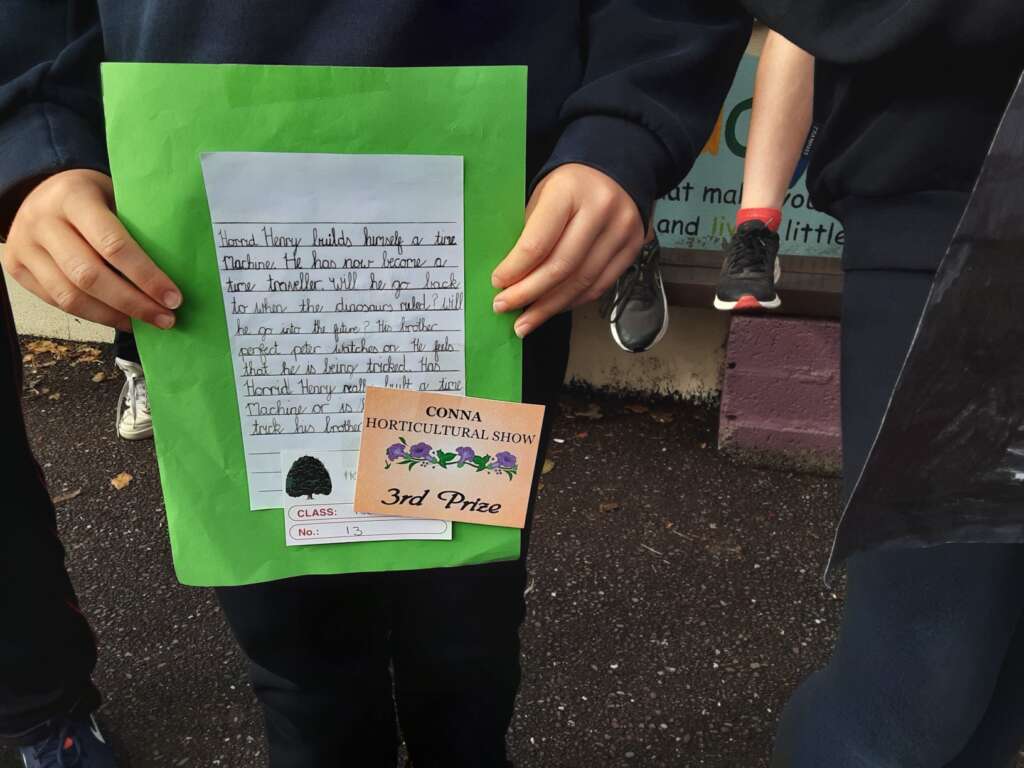 Horrid Henry builds himself a time
Machine. He has now become a
time traveller. Will he go back
to when the dinosaurs ruled? Will
he go into the future? His brother
perfect peter watches on. He feels
that he is being tricked. Has
Horrid Henry really built a time
Machine or is
trick his brother
CONNA
HORTICULTURAL SHOW
3rd Prize
CLASS:
No.: 13
at make you
and live little